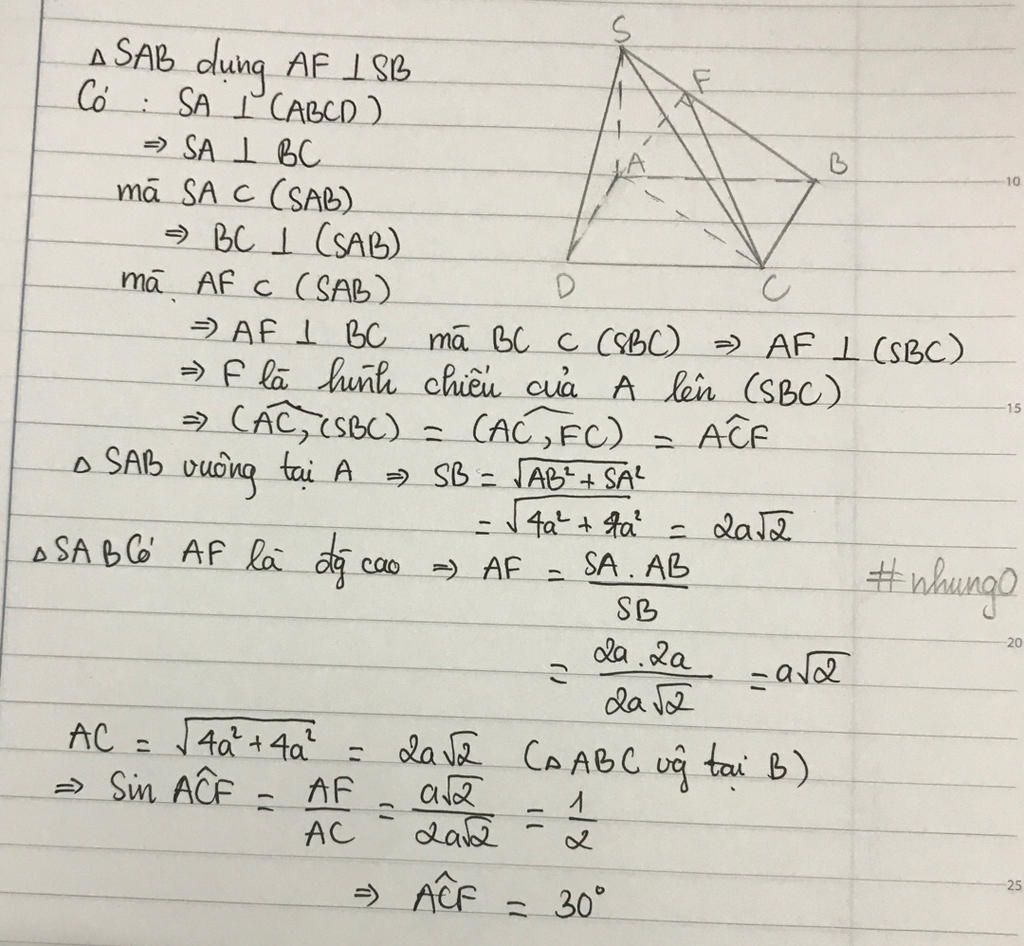 △SAB dựng AF ⊥ SB
Có : SA ⊥ (ABCD)
⇒ SA ⊥ BC
mà SA ⊂ (SAB)
⇒ BC ⊥ (SAB)
mà AF ⊂ (SAB)
⇒ AF ⊥ BC mà BC ⊂ (SBC) ⇒ AF ⊥ (SBC)
⇒ F là hình chiếu của A lên (SBC)
⇒ (AC, (SBC) = (AC, FC) = AĈF
△ SAB vuông tại A ⇒ SB = √(AB² + SA²)
= √(4a² + 4a²) = 2a√2
△SAB Có AF là đg̃ cao ⇒ AF = SA . AB / SB
= 2a . 2a / 2a√2 = a√2
AC = √(4a² + 4a²) = 2a√2 (△ ABC vg̃ tại B)
⇒ Sin AĈF = AF / AC = a√2 / 2a√2 = 1 / 2
⇒ AĈF = 30°
S
F
A
B
D
C
#nhung0
10
15
20
25